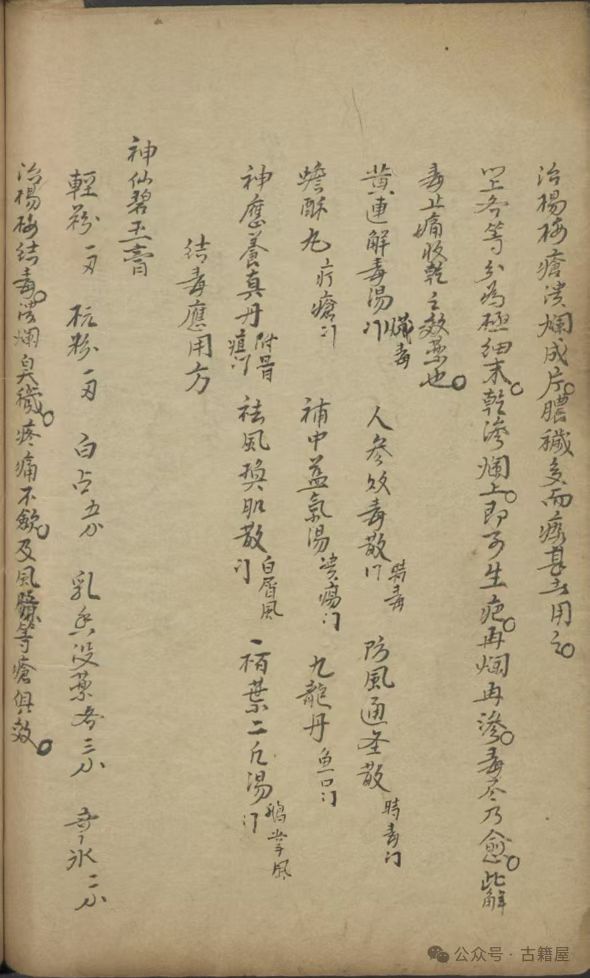 治楊梅瘡潰爛成片。膿穢多而疼甚去用之。
以上各等分為極細末。乾滲爛上。即可生疤。再爛再滲。毒尽乃愈。此解
毒止痛收乾之效藥也。
黄連解毒湯 臟毒门 人参敗毒散 時毒门 防風通圣散 時毒门
蟾酥丸 疔瘡门 補中益氣湯 潰瘍门 九龍丹 魚口门
神應養真丹 祛風換肌散 白屑風门 一栢葉二瓦湯 鵝掌風门
結毒應用方
神仙碧玉膏
輕粉一刄 杭粉一刄 白占五分 乳香没藥各三分 水二分
治楊梅結毒。潰爛臭穢。疼痛不歛。及風臁等瘡俱效。
公众号·古籍屋